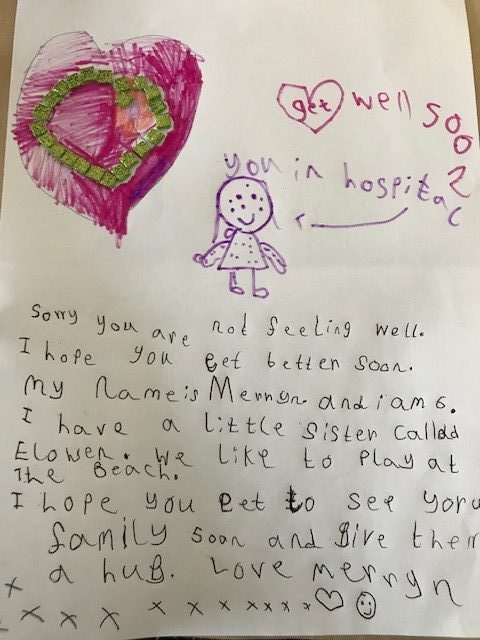 get well soon
you in hospital
Sorry you are not feeling well.
I hope you get better soon.
My name is Merryn. and i am 6.
I have a little sister calldd
Elowen. We like to play at
The Beach.
I hope you get to see yoru
family soon and give them
a huB. Love merryn
x
x x x x x x x x x x x